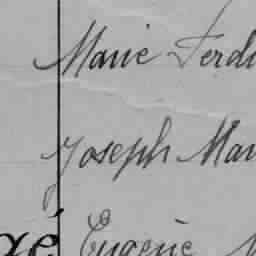 Marie Ferdi
Joseph Mar
gé Eugène